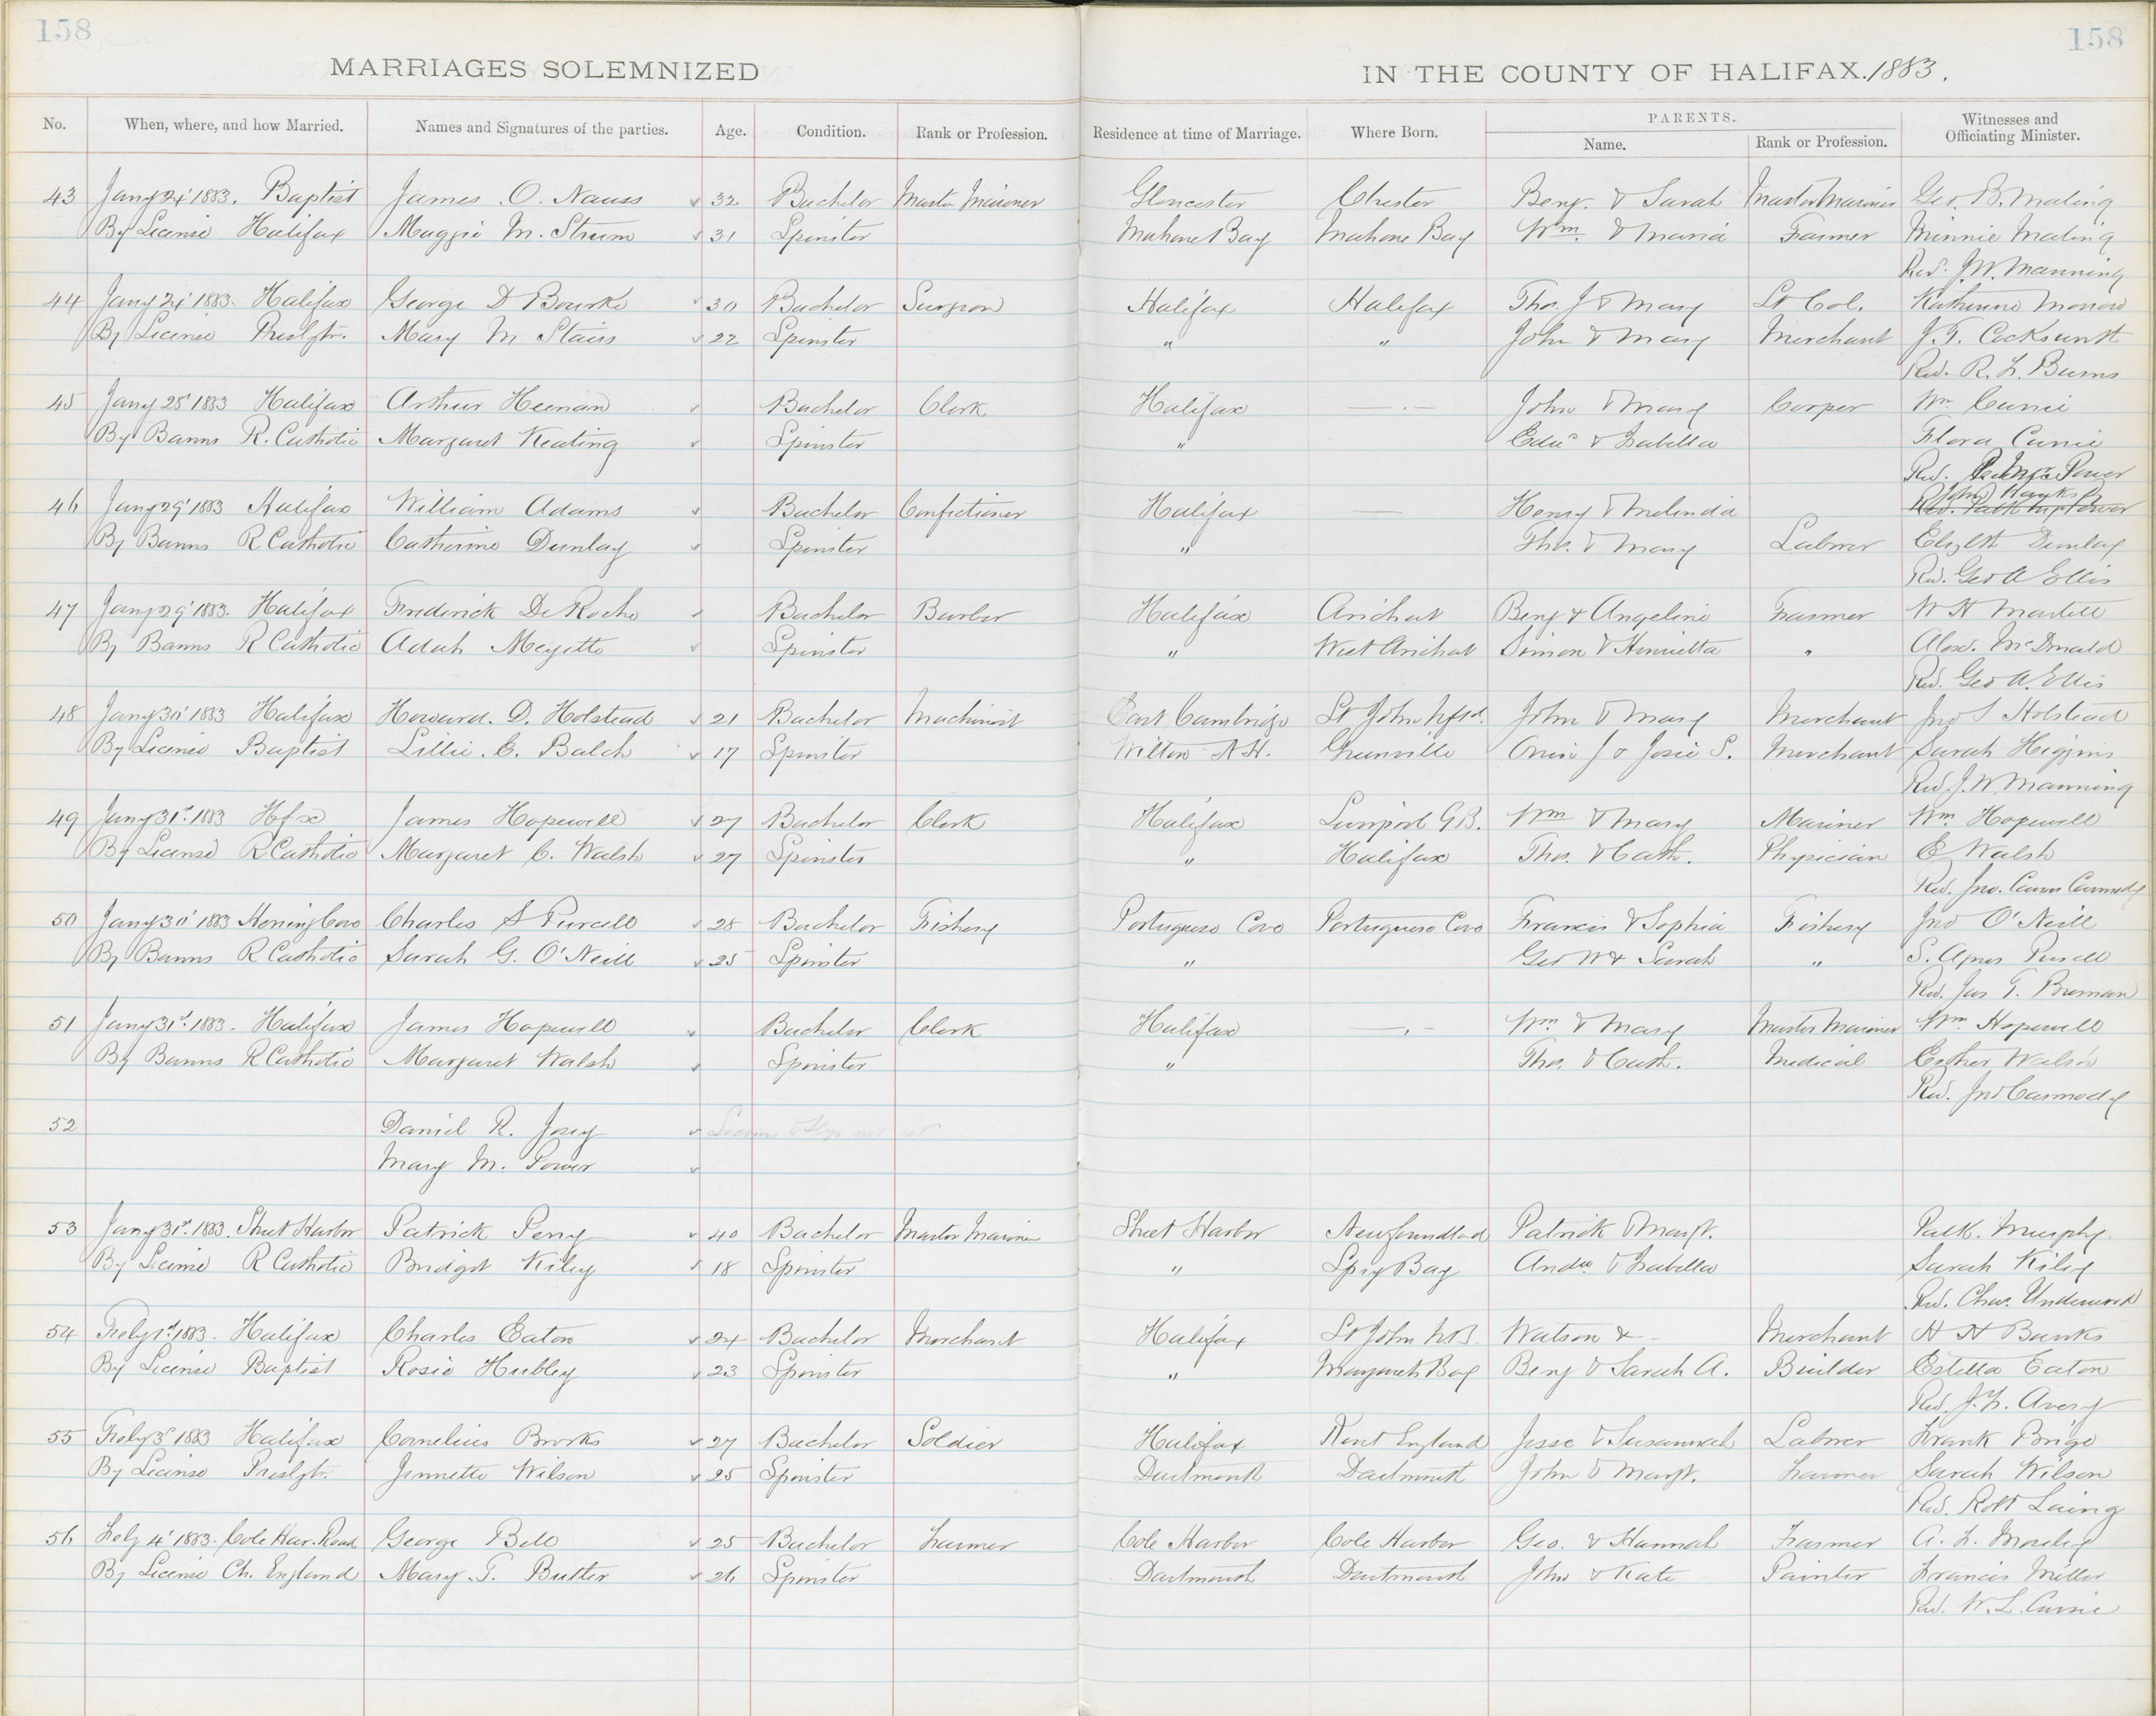 158
158
MARRIAGES SOLEMNIZED
IN THE COUNTY OF HALIFAX. 1883.
No. When, where, and how Married. Names and Signatures of the parties. Age. Condition. Rank or Profession. Residence at time of Marriage. Where Born. PARENTS. Name. Rank or Profession. Witnesses and Officiating Minister.
43 Jany 24' 1883. Baptist James O. Nauss 32 Bachelor Master Mariner Gloucester Chester Benj. & Sarah Master Mariner Geo. B. Maling
By License Halifax Maggie M. Strum 31 Spinster Mahone Bay Mahone Bay Wm. & Maria Farmer Minnie Maling
Rev. J. W. Manning
44 Jany 24' 1883. Halifax George D Bourke 30 Bachelor Surgeon Halifax Halifax Thos. J & Mary Lt Col. Katherine Morrow
By License Presbytr. Mary M Stairs 22 Spinster " " John & Mary Merchant
Rev. R. F. Burns
45 Jany 28' 1883 Halifax Arthur Heenan Bachelor Clerk Halifax — John & Mary Cooper Wm Currie
By Banns R. Catholic Margaret Keating Spinster " Edwd & Isabella Flora Currie
Rev. Power
46 Jany 29' 1883 Halifax William Adams Bachelor Confectioner Halifax — Henry & Melinda
By Banns R Catholic Catherine Dunlay Spinster " Thos. & Mary Labrer Elizbth Dunlay
Rev. Geo A Ellis
47 Jany 29' 1883. Halifax Fredirick De Roche Bachelor Barber Halifax Arichat Benj & Angeline Farmer W H Martell
By Banns R Catholic Adah Meyette Spinster " West Arichat Simon & Henrietta " Alex. McDonald
Rev. Geo A. Ellis
48 Jany 30' 1883 Halifax Howard. D. Holstead 21 Bachelor Machinist East Cambridge St John Nfld. John & Mary Merchant Jno S Holstead
By License Baptist Lillie. C. Balch 17 Spinster Wilton N.H. Greenville Orin J & Josie S. Merchant Sarah Higgins
Rev J. W. Manning
49 Jany 31st. 1883 Hfx James Hopewell 27 Bachelor Clerk Halifax Liverpool G.B. Wm & Mary Mariner Wm Hopewell
By License R Catholic Margaret C. Walsh 27 Spinster " Halifax Thos. & Cath. Physician E Walsh
Rev. Jno. Carmody
50 Jany 30' 1883 Herring Cove Charles S Purcell 28 Bachelor Fishery Portuguese Cove Portuguese Cove Francis & Sophia Fishery Jno O'Neill
By Banns R Catholic Sarah G. O'Neill 25 Spinster " Geo W & Sarah " S. Agnes Purcell
Rev. Jas T.
51 Jany 31st. 1883. Halifax James Hopewell Bachelor Clerk Halifax — Wm. & Mary Master Mariner Wm. Hopewell
By Banns R Catholic Margaret Walsh Spinster " Thos. & Cath. Medical Esther Walsh
Rev. Jno Carmody
52 Daniel R. Josey
Mary M. Power
53 Jany 31st. 1883. Sheet Harbor Patrick Perry 40 Bachelor Master Mariner Sheet Harbor Newfoundland Patrick & Margt. Patk. Murphy
By License R Catholic Bridget Kiley 18 Spinster " Spry Bay Andw & Isabella Sarah Kiley
Rev. Chas. Underwood
54 Feby 1st 1883. Halifax Charles Eaton 24 Bachelor Merchant Halifax St John N.B. Watson & - Merchant H H Banks
By License Baptist Rosie Hubley 23 Spinster " Margarets Bay Benj & Sarah A. Builder Estella Eaton
Rev. J. F. Avery
55 Feby 3' 1883 Halifax Cornelius Brooks 27 Bachelor Soldier Halifax Kent England Jesse & Susannah Labrer Frank
By License Presbytr. Jennette Wilson 25 Spinster Dartmouth Dartmouth John & Margt. Farmer Sarah Wilson
Rev. Robt Laing
56 Feby 4' 1883. Cole Har. Road George Bell 25 Bachelor Farmer Cole Harbor Cole Harbor Geo. & Hannah Farmer A. F.
By License Ch. England Mary. T. Butler 26 Spinster Dartmouth Dartmouth John & Kate Painter Francis Miller
Rev. W. L. Currie